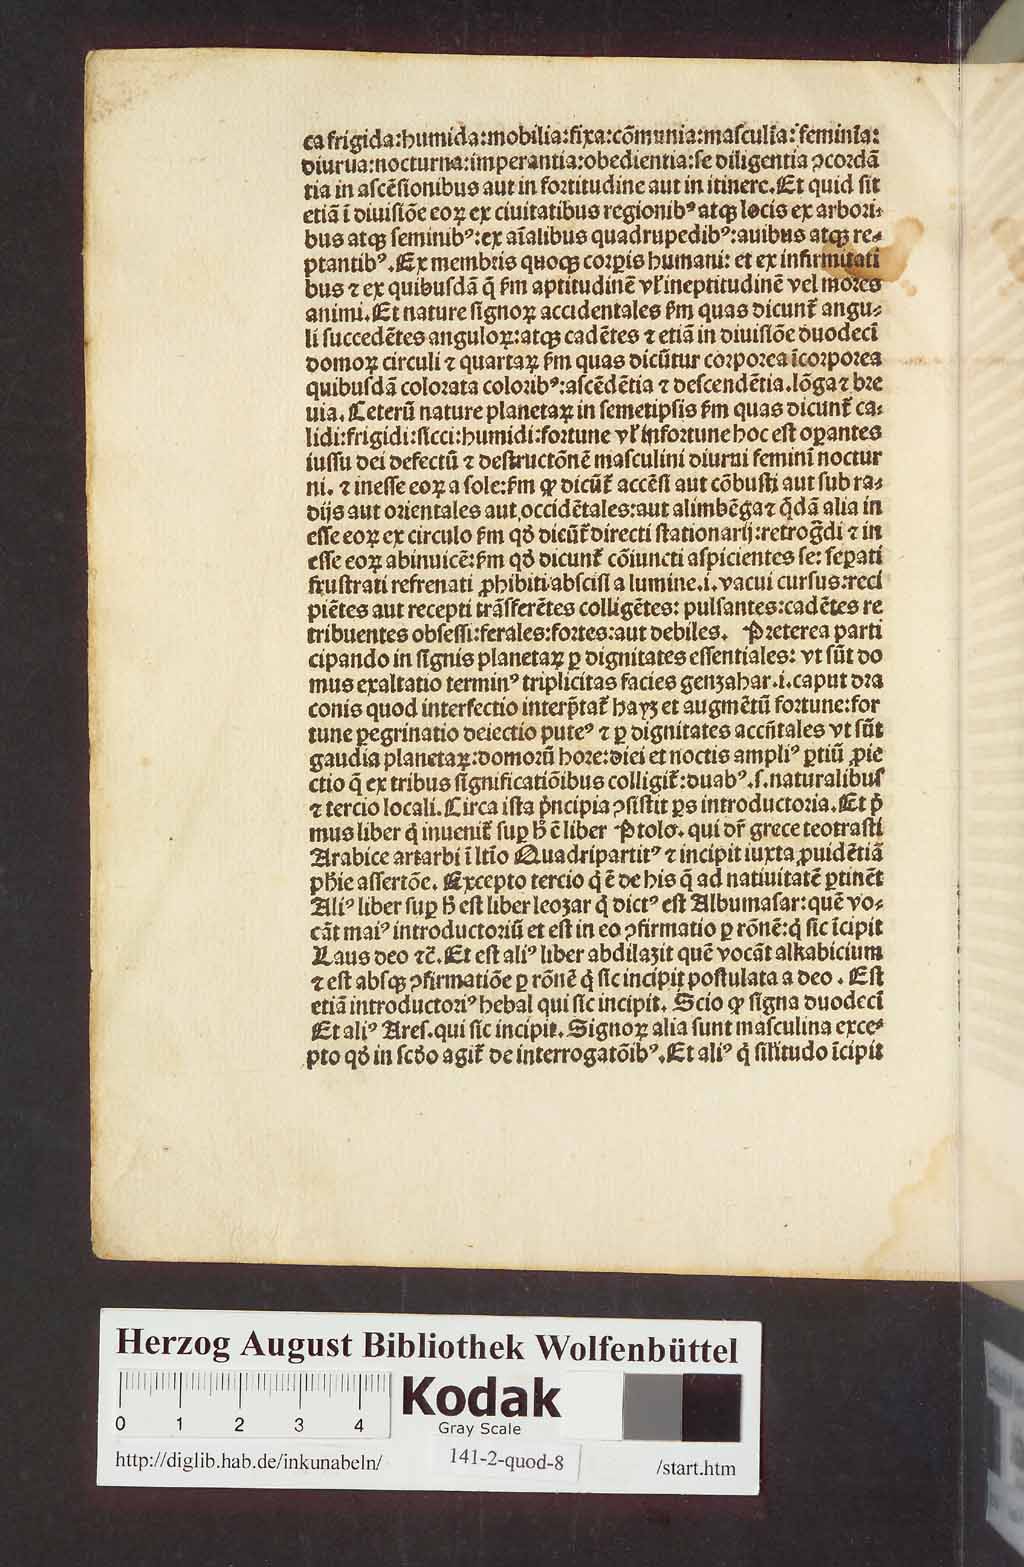 ca frigida:humida:mobilia:fixa:cõmunia:masculĩa:feminĩa:
diurua:nocturna:imperantia:obedientia:se diligentia ꝯcordã
tia in ascẽsionibus aut in fortitudine aut in itinere.Et quid sit
etiã ĩ diuisiõe eoꝝ ex ciuitatibus regionibꝰ atqꝫ locis ex arbori-
bus atqꝫ seminibꝰ:ex aĩalibus quadrupedibꝰ:auibus atqꝫ re-
ptantibꝰ.Ex membris quoqꝫ corꝑis humani: et ex infirmitati
bus ⁊ ex quibusdã q̃ ẜm aptitudinẽ vl̕ ineptitudinẽ vel mores
animi.Et nature signoꝝ accidentales ẜm quas dicunt̃ angu-
li succedẽtes anguloꝝ:atqꝫ cadẽtes ⁊ etiã in diuisiõe duodecĩ
domoꝝ circuli ⁊ quartaꝝ ẜm quas dicũtur corporea ĩcorporea
quibusdã colorata coloribꝰ:ascẽdẽtia ⁊ descendẽtia.lõga ⁊ bre
uia.Ceterũ nature planetaꝝ in semetipsis ẜm quas dicunt̃ ca-
lidi:frigidi:sicci:humidi:fortune vl̕ infortune hoc est oꝑantes
iussu dei defectũ ⁊ destructõnẽ masculini diurni feminĩ noctur
ni. ⁊ inesse eoꝝ a sole:ẜm ꝙ dicũt̃ accẽsi aut cõbusti aut sub ra-
dijs aut orientales aut occidẽtales:aut alimbẽga ⁊ q̃dã alia in
esse eoꝝ ex circulo ẜm qđ dicũt̃ directi stationarij:retrog̃di ⁊ in
esse eoꝝ abinuicẽ:ẜm qđ dicunt̃ cõiuncti aspicientes se: seꝑati
frustrati refrenati ꝓhibiti abscisi a lumine.i.vacui cursus:reci
piẽtes aut recepti trãsferẽtes colligẽtes: pulsantes:cadẽtes re
tribuentes obsessi:ferales:fortes:aut debiles. Preterea parti
cipando in signis planetaꝝ ꝑ dignitates essentiales: vt sũt do
mus exaltatio terminꝰ triplicitas facies genzahar.i.caput dra
conis quod interfectio interp̃tat̃ hayz et augmẽtũ fortune:for
tune ꝑegrinatio deiectio puteꝰ ⁊ ꝑ dignitates accñtales vt sũt
gaudia planetaꝝ:domorũ hore:diei et noctis ampliꝰ ꝑtiũ ꝓie
ctio q̃ ex tribus significatiõibus colligit̃:duabꝰ.s.naturalibus
⁊ tercio locali.Circa ista p̃ncipia ꝯsistit ꝑs introductoria.Et p̃
mus liber q̇ inuenit̃ suꝑ h̃ ẽ liber Ptolo. qui dr̃ grece teotrasti
Arabice artarbi ĩ ltĩo Quadripartitꝰ ⁊ incipit iuxta ꝓuidẽtiã
ph̃ie assertõe. Excepto tercio q̇ ẽ de his q̃ ad natiuitatẽ ꝑtinẽt
Aliꝰ liber suꝑ h̃ est liber leozar q̇ dictꝰ est Albumasar:quẽ vo-
cãt maiꝰ introductoriũ et est in eo ꝯfirmatio ꝑ rõnẽ:q̇ sic ĩcipit
Laus deo ⁊c̃.Et est aliꝰ liber abdilazit quẽ vocãt alkabicium
⁊ est absqꝫ ꝯfirmatiõe ꝑ rõnẽ q̇ sic incipit postulata a deo . Est
etiã introductoriꝰ hebal qui sic incipit. Scio ꝙ signa duodecĩ
Et aliꝰ Ares.qui sic incipit.Signoꝝ alia sunt masculina exce-
pto qđ in scđo agit̃ de interrogatõibꝰ.Et aliꝰ q̇ sil̃itudo ĩcipit
Herzog August Bibliothek Wolfenbüttel
0 1 2 3 4
Kodak
Gray Scale
http://diglib.hab.de/inkunabeln/ 141-2-quod-8 /start.htm